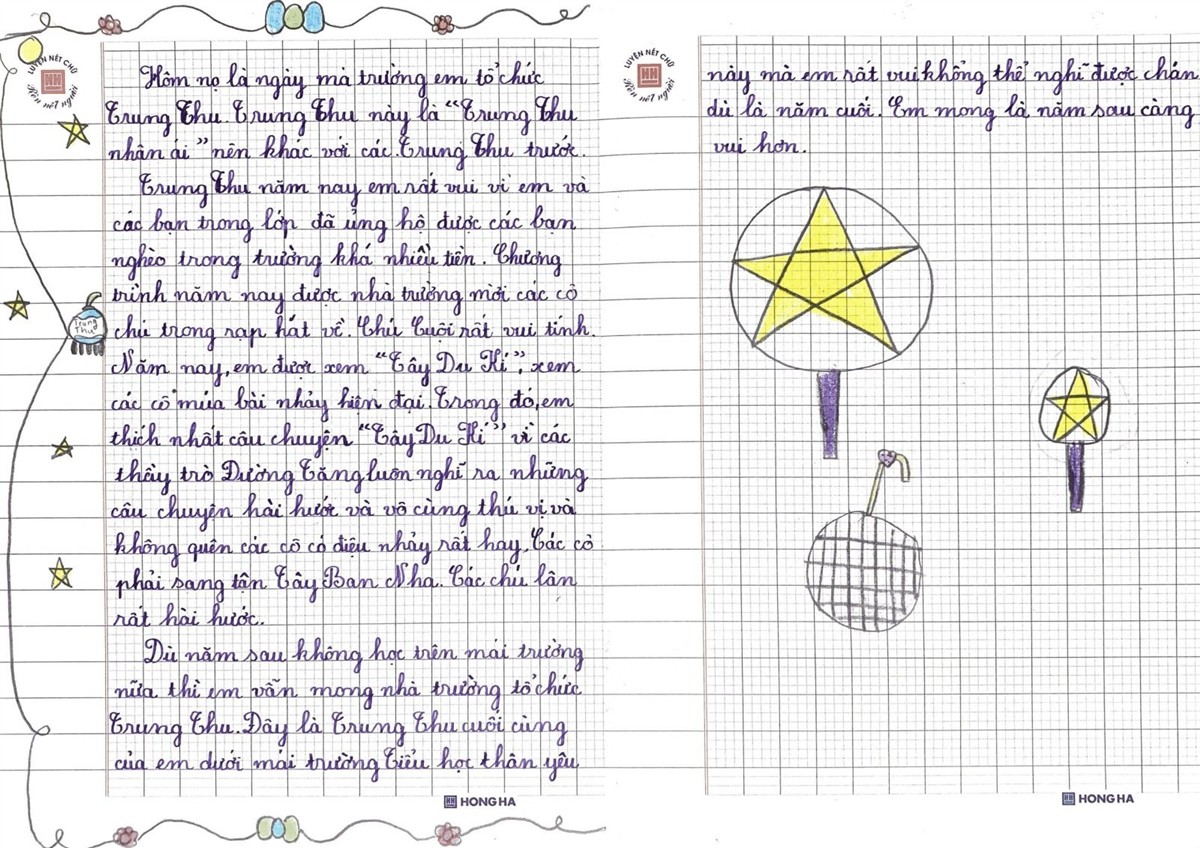 LUYỆN NÉT CHỮ
HH
Rèn nết người
Hôm nọ là ngày mà trường em tổ chức
Trung Thu. Trung Thu này là “Trung Thu
nhân ái” nên khác với các Trung Thu trước.
Trung Thu năm nay em rất vui vì em và
các bạn trong lớp đã ủng hộ được các bạn
nghèo trong trường khá nhiều tiền. Chương
trình năm nay được nhà trường mời các cô
chú trong rạp hát về. Chú Cuội rất vui tính.
Năm nay, em được xem “Tây Du Kí”, xem
các cô múa bài nhảy hiện đại. Trong đó, em
thích nhất câu chuyện “Tây Du Kí” vì các
thầy trò Đường Tăng luôn nghĩ ra những
câu chuyện hài hước và vô cùng thú vị và
không quên các cô có điệu nhảy rất hay. Các cô
phải sang tận Tây Ban Nha. Các chú lân
rất hài hước.
Dù năm sau không học trên mái trường
nữa thì em vẫn mong nhà trường tổ chức
Trung Thu. Đây là Trung Thu cuối cùng
của em dưới mái trường Tiểu học thân yêu
Trung
Thu
HH HONG HA
LUYỆN NÉT CHỮ
HH
Rèn nết người
này mà em rất vui không thể nghĩ được chán
dù là năm cuối. Em mong là năm sau càng
vui hơn.
HH HONG HA